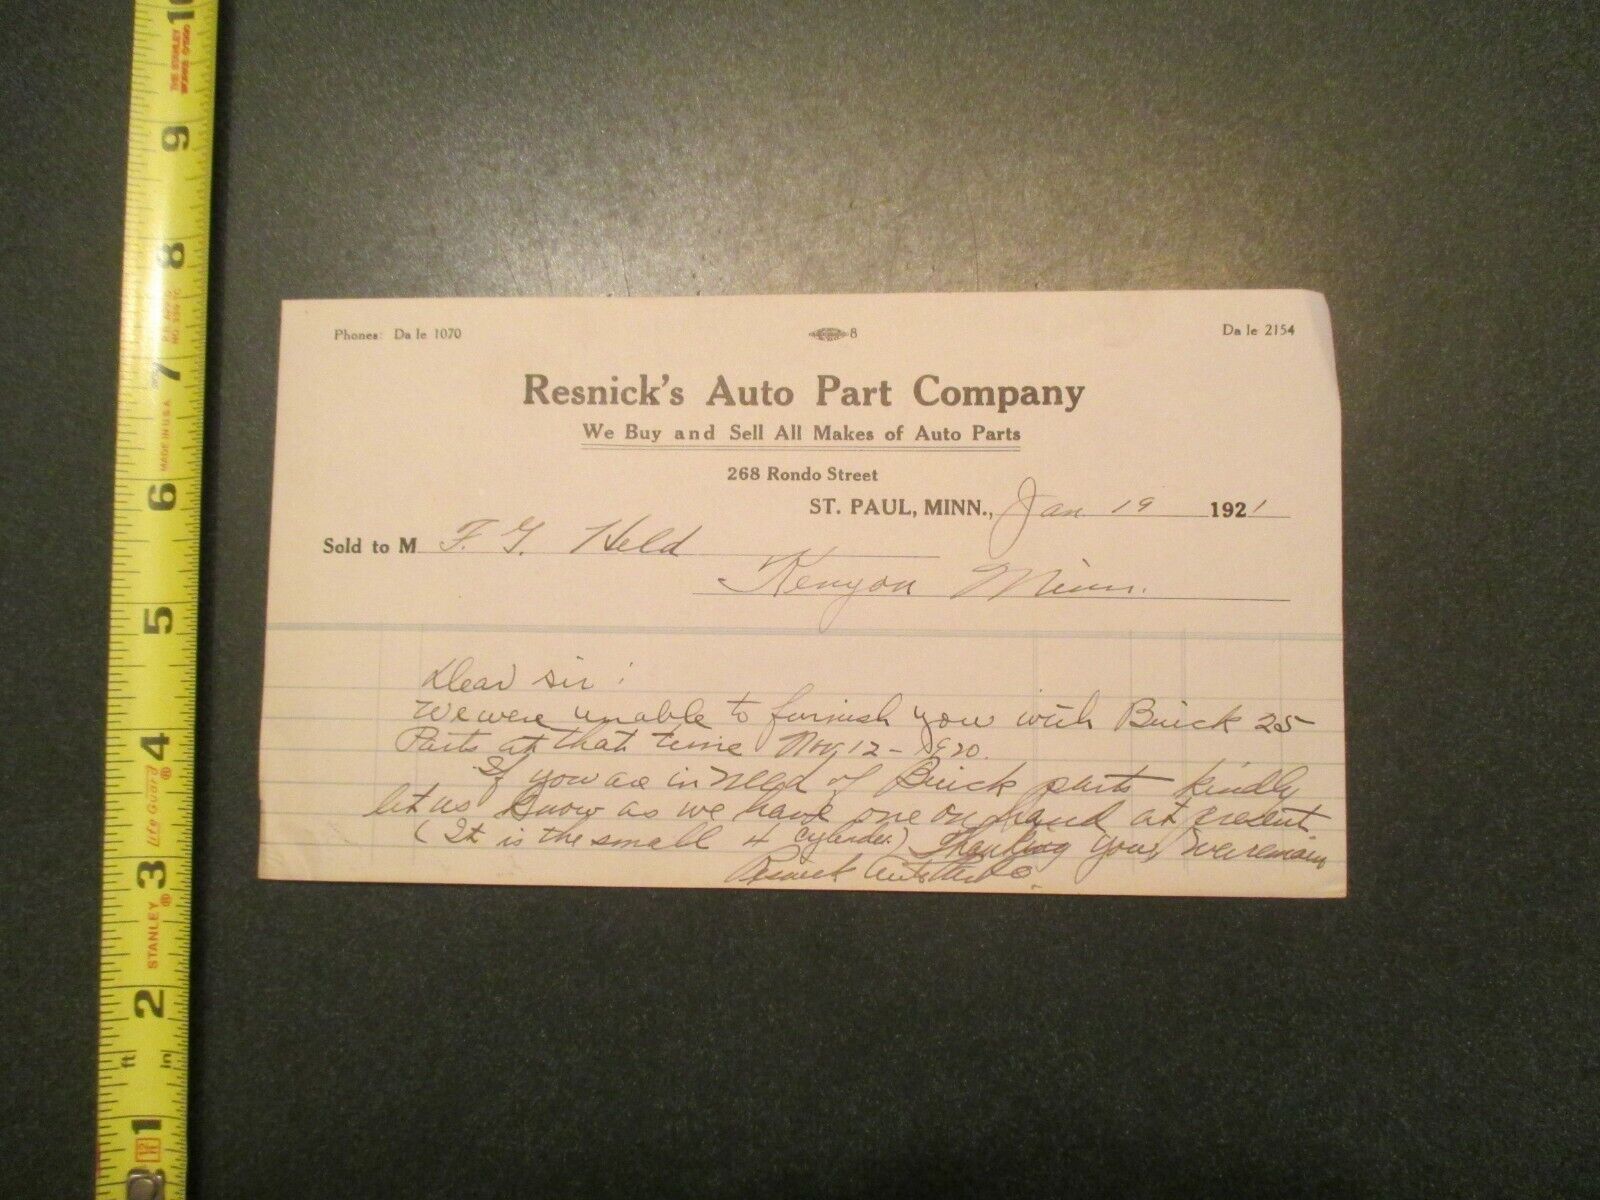 Phones: Da le 1070 8 Da le 2154
Resnick's Auto Part Company
We Buy and Sell All Makes of Auto Parts
268 Rondo Street
ST. PAUL, MINN., Jan. 19 1921
Sold to M F. G. Held
Kenyon Minn.
Dear sir:
We were unable to furnish you with Buick 25
Parts at that time Nov. 12 - 1920.
If you are in need of Buick parts kindly
let us know as we have one on hand at present.
(It is the small 4 cylinder) Thanking you, we remain
Resnick Auto Part Co.
10
9
8
7
6
5
4
3
2
1
ft in
STANLEY
Life Guard
MADE IN U.S.A.
THE STANLEY